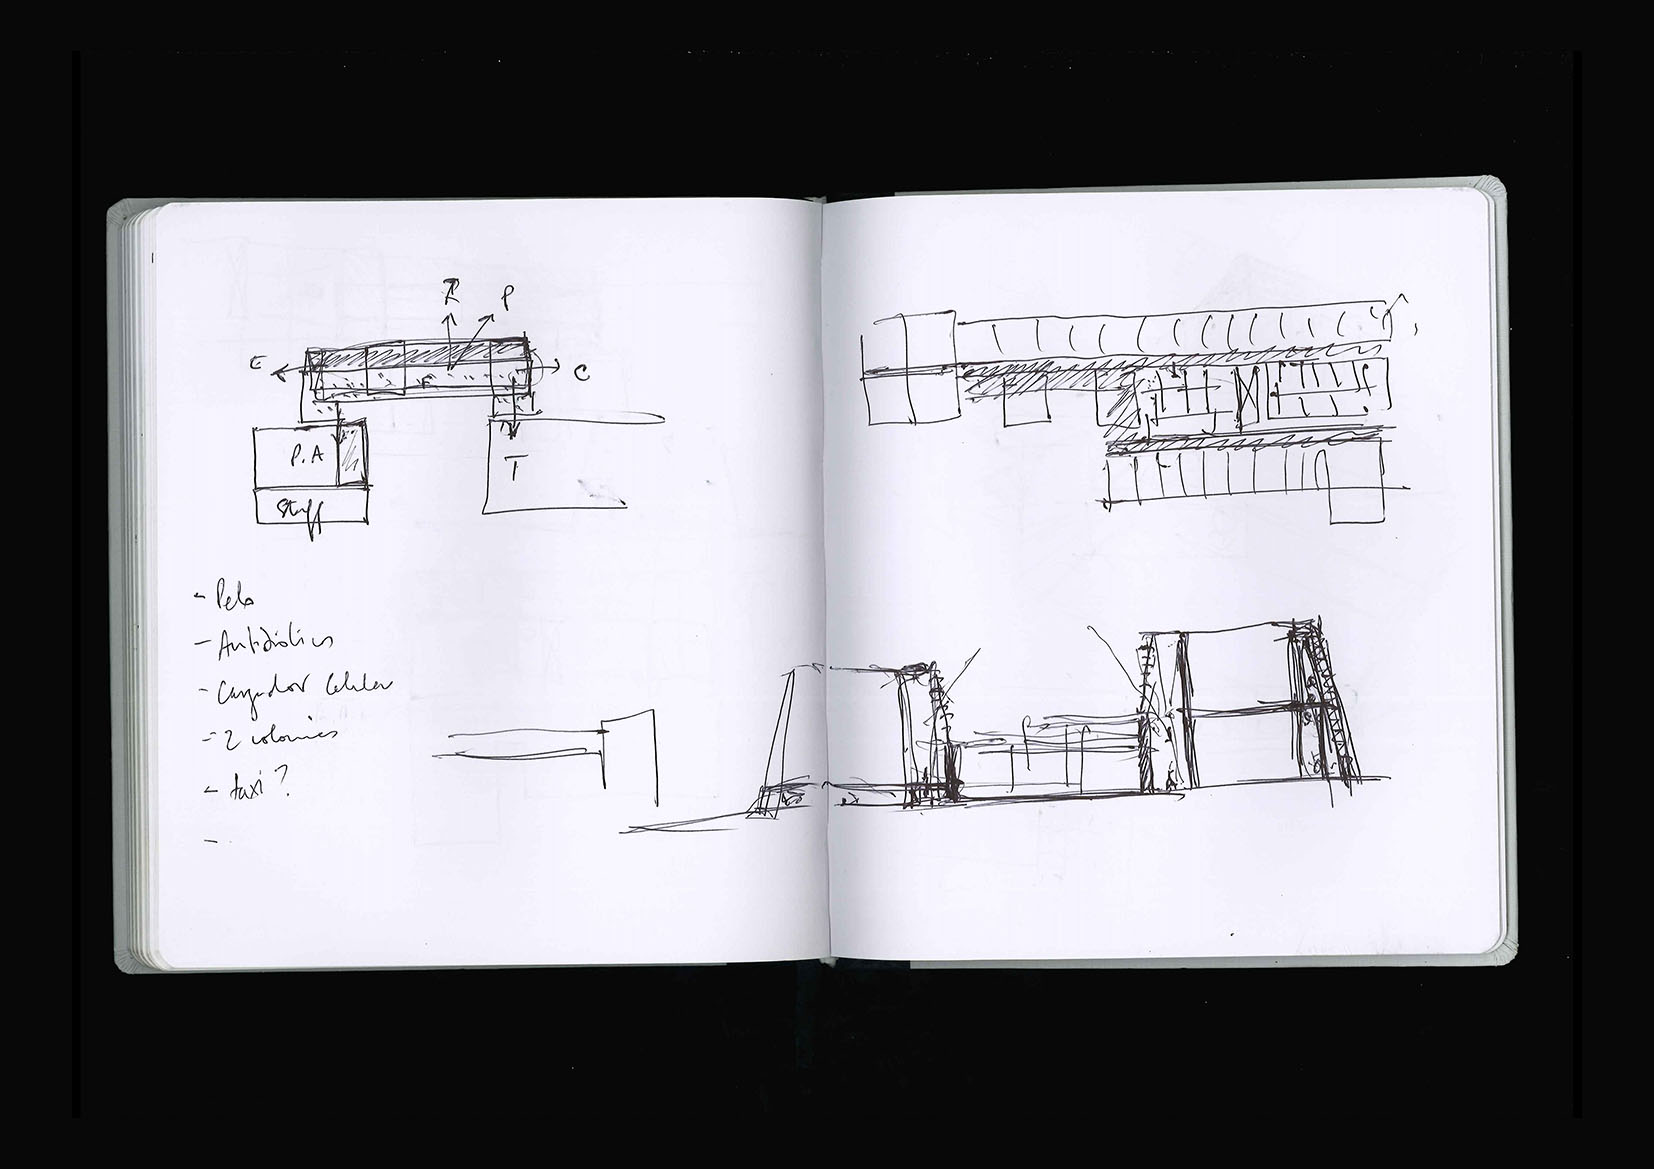 R P
E C
F
P.A
T
Staff
- Pelo
- Antibióticos
- Cargador Celular
- 2 colonias
- taxi?
-